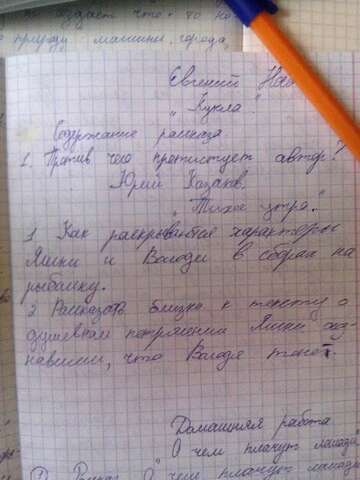 создаёт что-то но
природу машины, города,
Евгений Нос
"Кукла".
Содержание рассказа.
1. Против чего протистует автор?
Юрий Казаков.
"Тихое утро."
1 Как раскрываются характеры
Яшки и Володи в сборах на
рыбалку.
2 Рассказать близко к тексту о
душевном потрясении Яшки
что Володя тонет.
Домашняя работа
"О чем плачут лошади"
"О чем плачут лошади